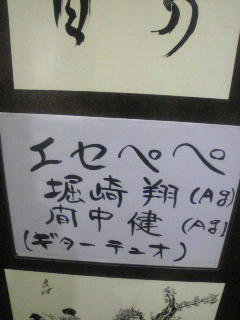 エセペペ
堀崎翔(Ag)
間中健(Ag)
(ギターデュオ)